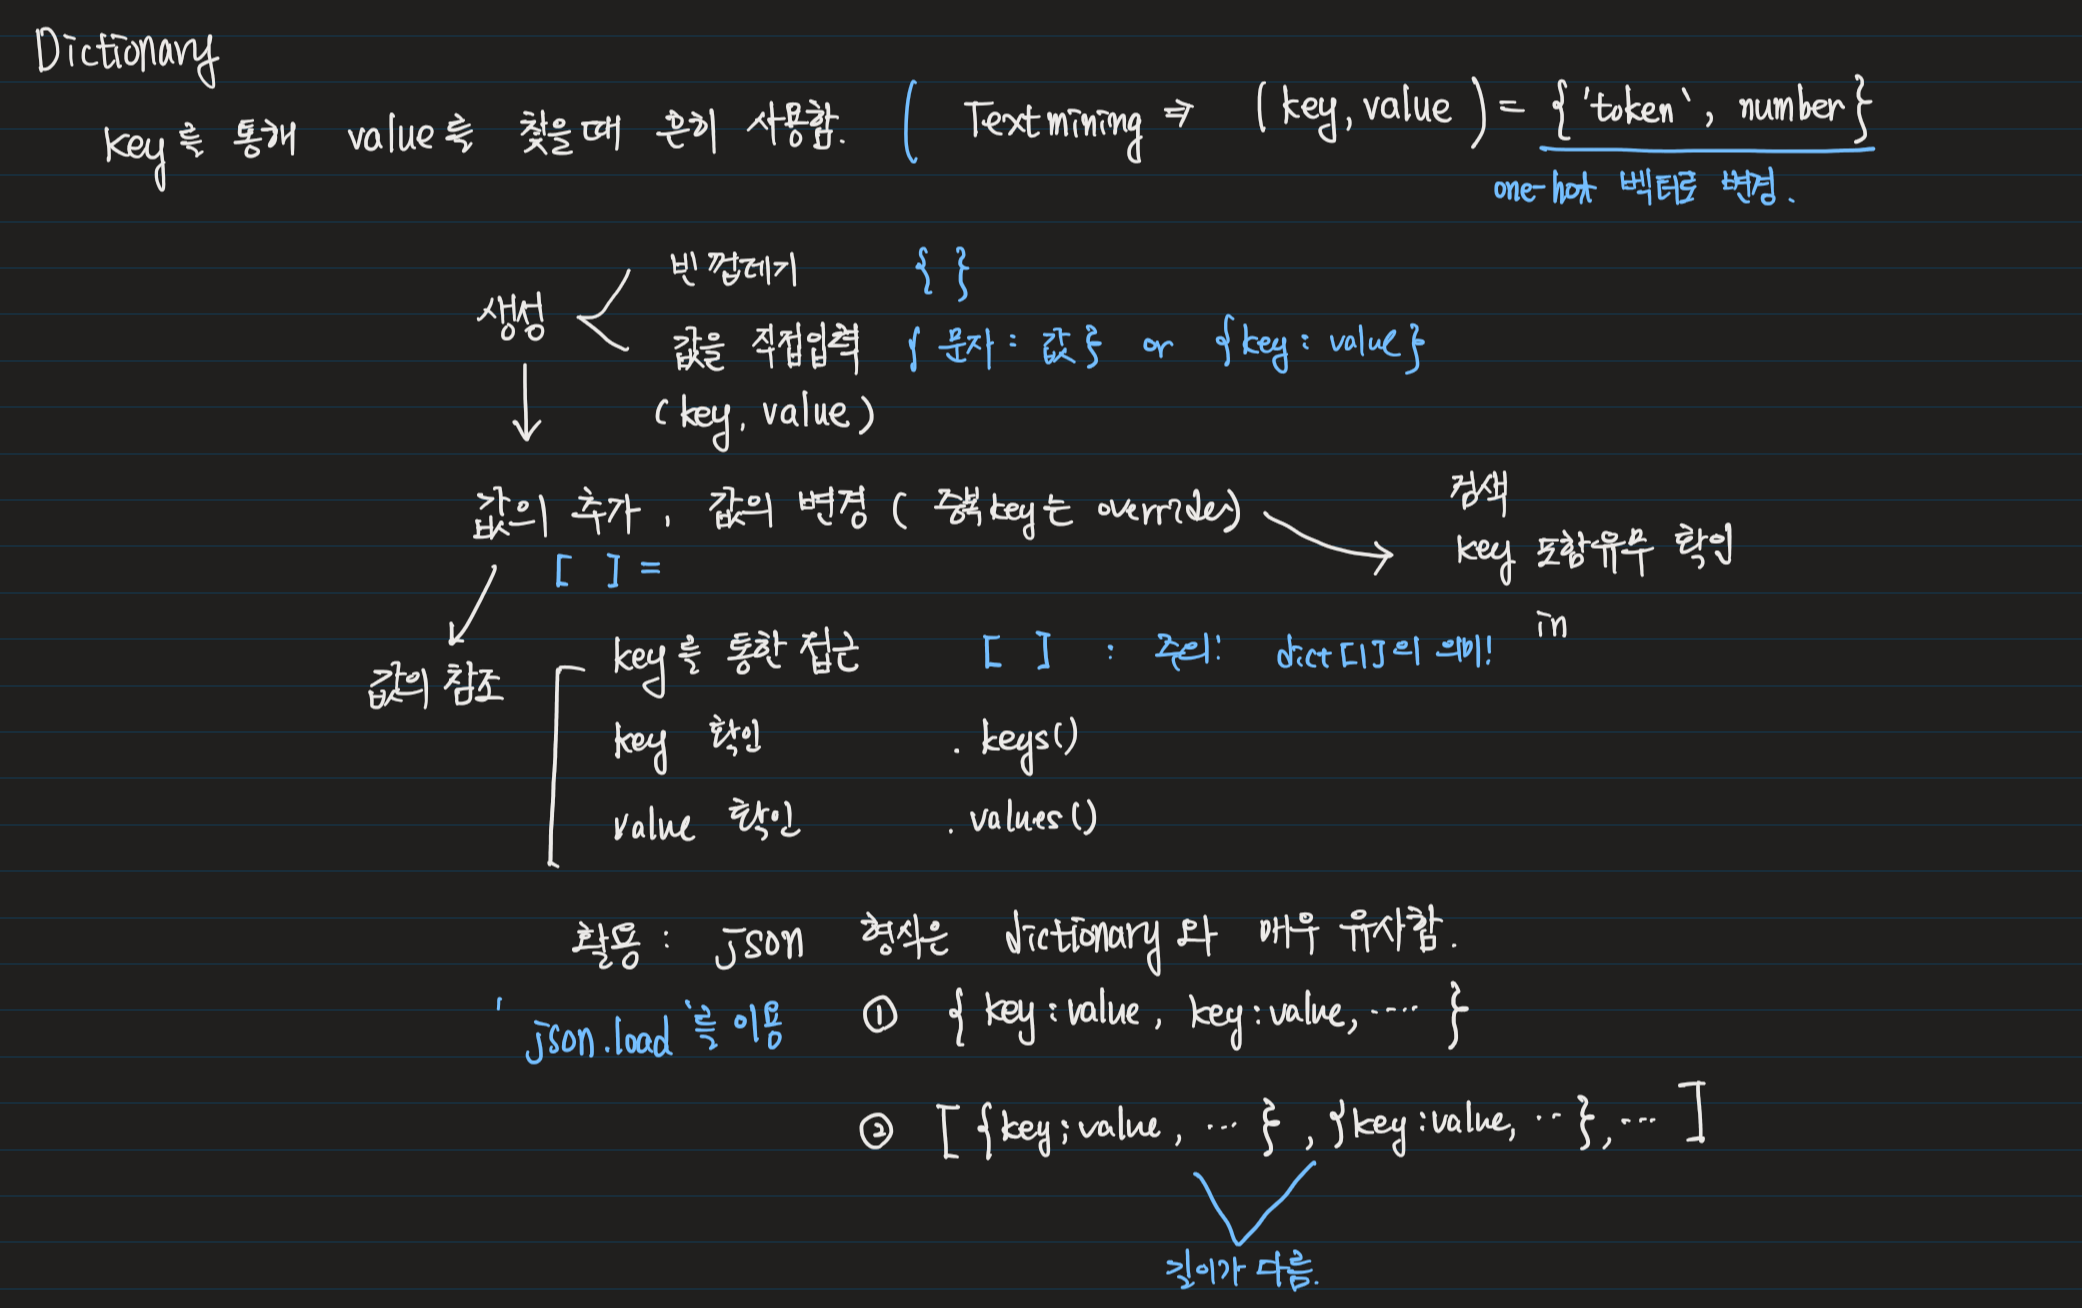 Dictionary
key를 통해 value를 찾을때 흔히 사용함. ( Textmining ⇒ (key, value) = {'token`, number}
one-hot 벡터로 변경.
빈 껍데기 { }
생성
값을 직접입력 { 문자 : 값 } or {key : value}
(key, value)
검색
값의 추가, 값의 변경 ( 중복key는 override)
key 포함유무 확인
[ ] =
in
key를 통한 접근 [ ] : 주의! dict[1]의 의미!
값의 참조
key 확인 . keys()
value 확인 . values()
활용 : json 형식은 dictionary와 매우 유사함.
'json.load'를 이용 ① { key : value, key : value, ···· }
② [ {key ; value, ··· } , {key : value, ·· }, ··· ]
길이가 다름.